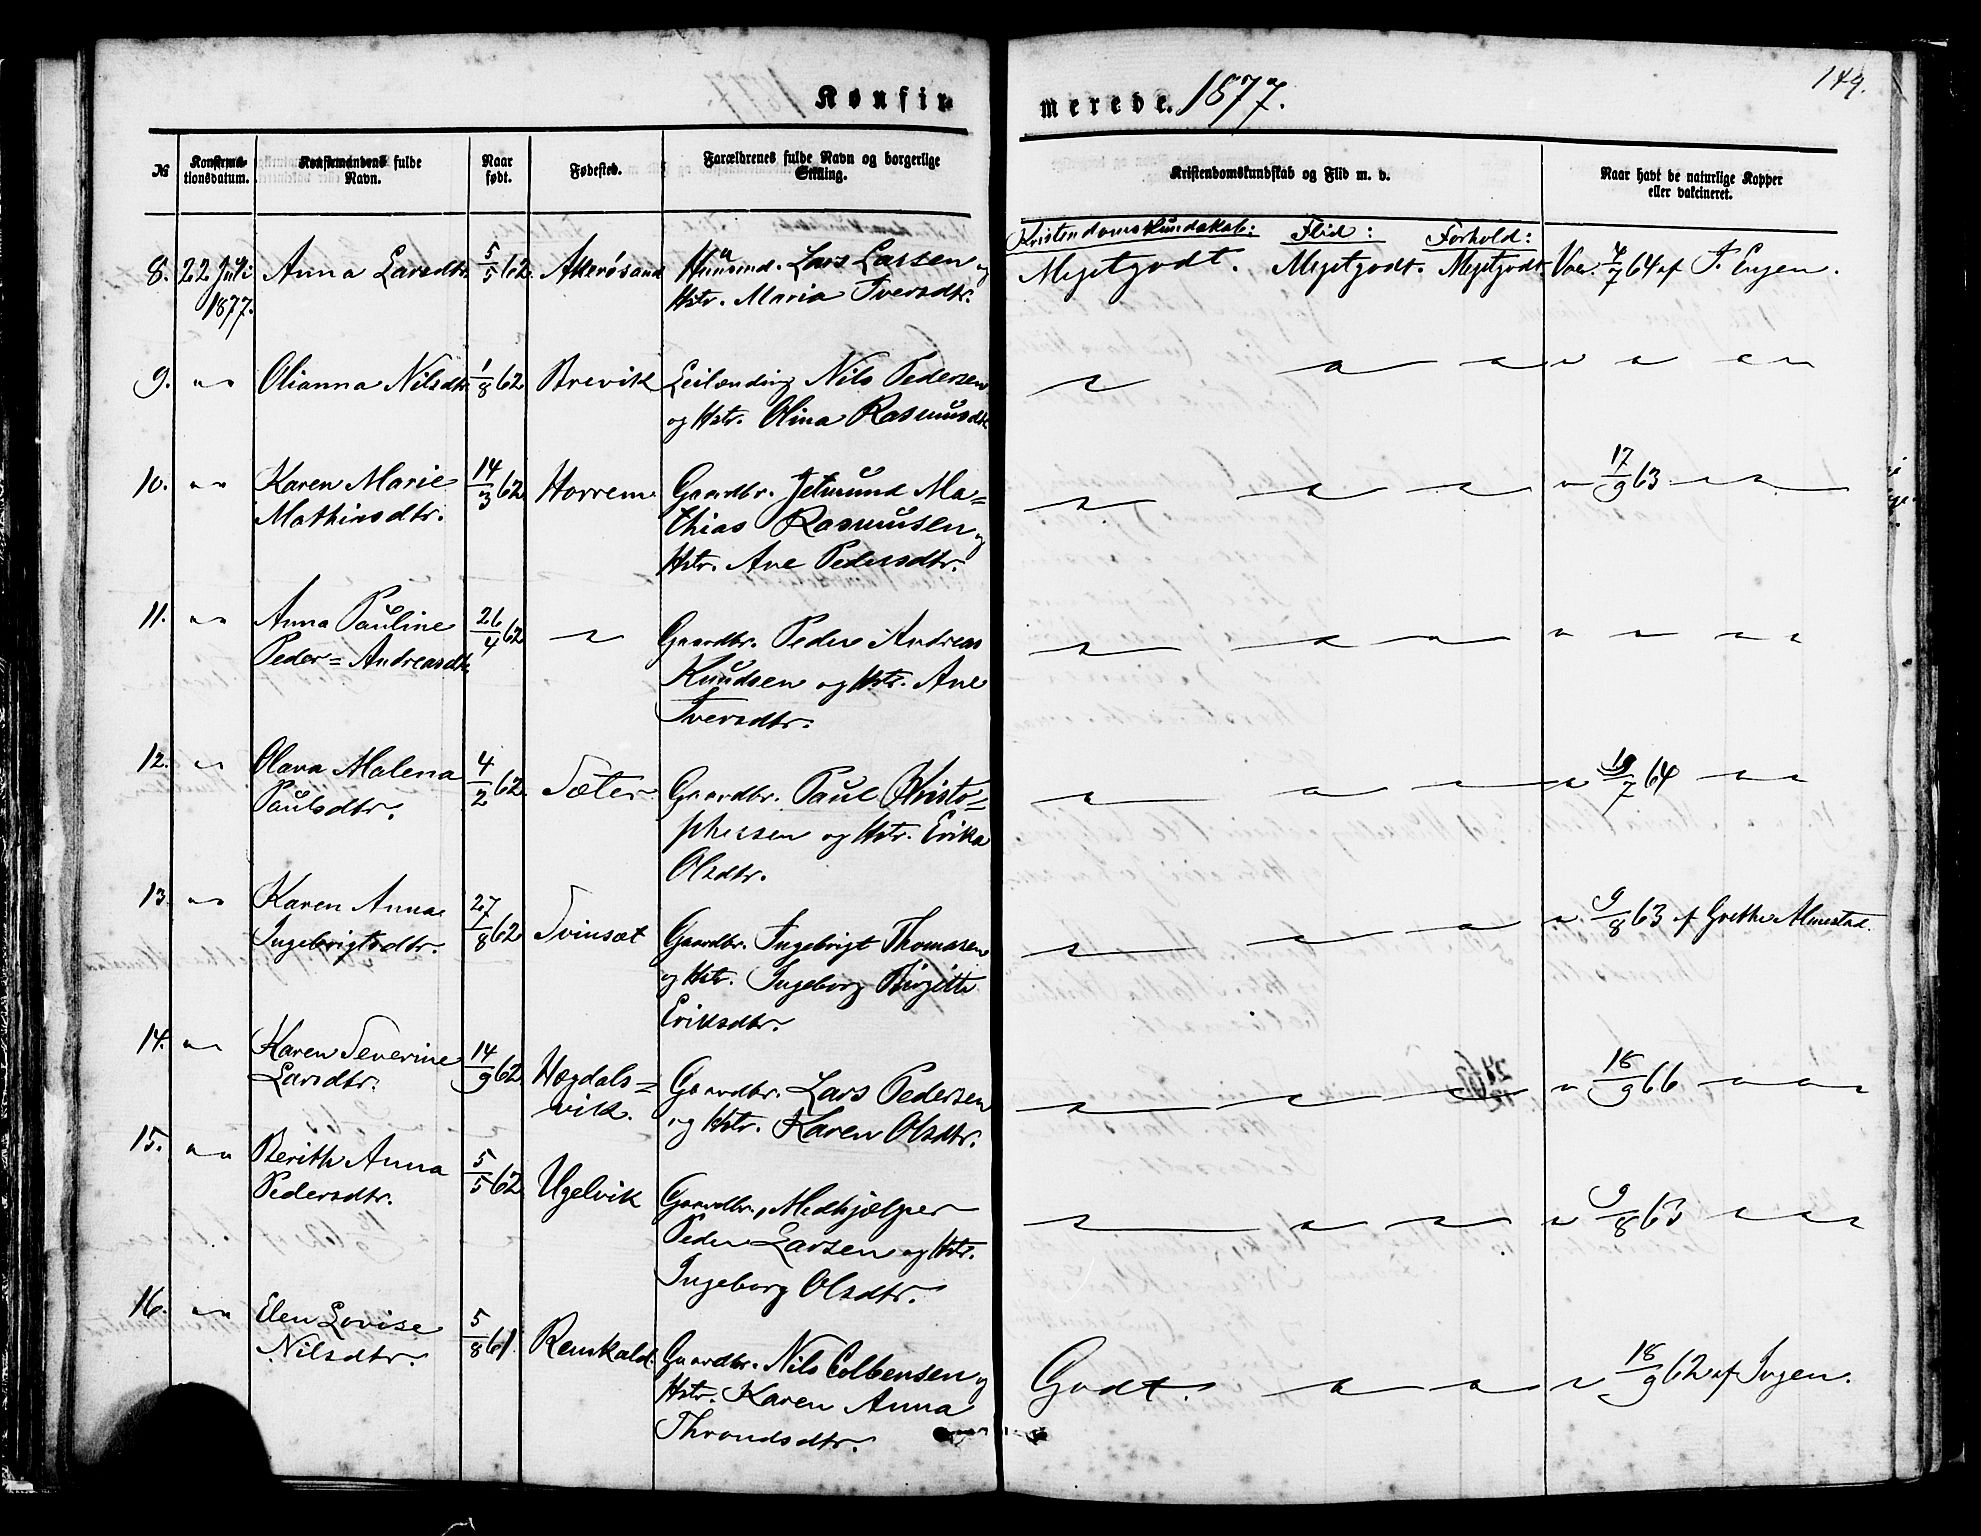 149.
Konfirmerede. 1877.
№ | Konfirmationsdatum. | Konfirmandens fulde Navn. | Naar født. | Fødested. | Forældrenes fulde Navn og borgerlige Stilling. | Kristendomskundskab og Flid m. v. | Naar havt de naturlige Kopper eller vakcineret.
Kristendomskundskab: Flid: Forhold:
8. 22 Juli Anna Larsdtr. 5/5 62. Akerøsund Huusmd. Lars Larsen og Megetgodt. Megetgodt. Megetgodt. Vac. 7/7 64 af J. Engen.
1877. Hstr. Maria Iversdtr.
9. „ „ Olianna Nilsdtr. 1/8 62 Brevik Leilænding Nils Pedersen
og Hstr. Olina Rasmusdtr.
10. „ „ Karen Marie 14/3 62 Horrem Gaardbr. Jetmund Ma=
Mathiasdtr. thias Rasmussen og 17/9 63
Hstr. Ane Pedersdtr.
11. „ „ Anna Pauline 26/4 62 „ Gaardbr. Peder Andreas
Peder=Andreasdtr. Knudsen og Hstr. Ane
Iversdtr.
12. „ Olava Malena 4/2 62. Sæter Gaardbr. Paul Kristo= 19/7 64
Paulsdtr. phersen og Hstr. Erika
Olsdtr.
13. „ „ Karen Anna 27/8 62 Svinsæt Gaardbr. Ingebrigt Thomasen 9/8 63 af Grethe Almestad.
Ingebrigtsdtr. og Hstr. Ingeborg Birgitte
Eriksdtr.
14. „ „ Karen Severine 14/9 62 Hægdals= Gaardbr. Lars Pedersen 18/9 66
Larsdtr. vik. og Hstr. Karen Olsdtr.
15. „ „ Berith Anna 5/5 62 Ugelvik Gaardbr., Medhjælper 9/8 63
Pedersdtr. Peder Larsen og Hstr.
Ingeborg Olsdtr.
16. „ „ Elen Lovise 5/8 61. Remkald. Gaardbr. Nils Colbensen og Godt. 18/9 62 af Engen.
Nilsdtr. Hstr. Karen Anna
Throndsdtr.